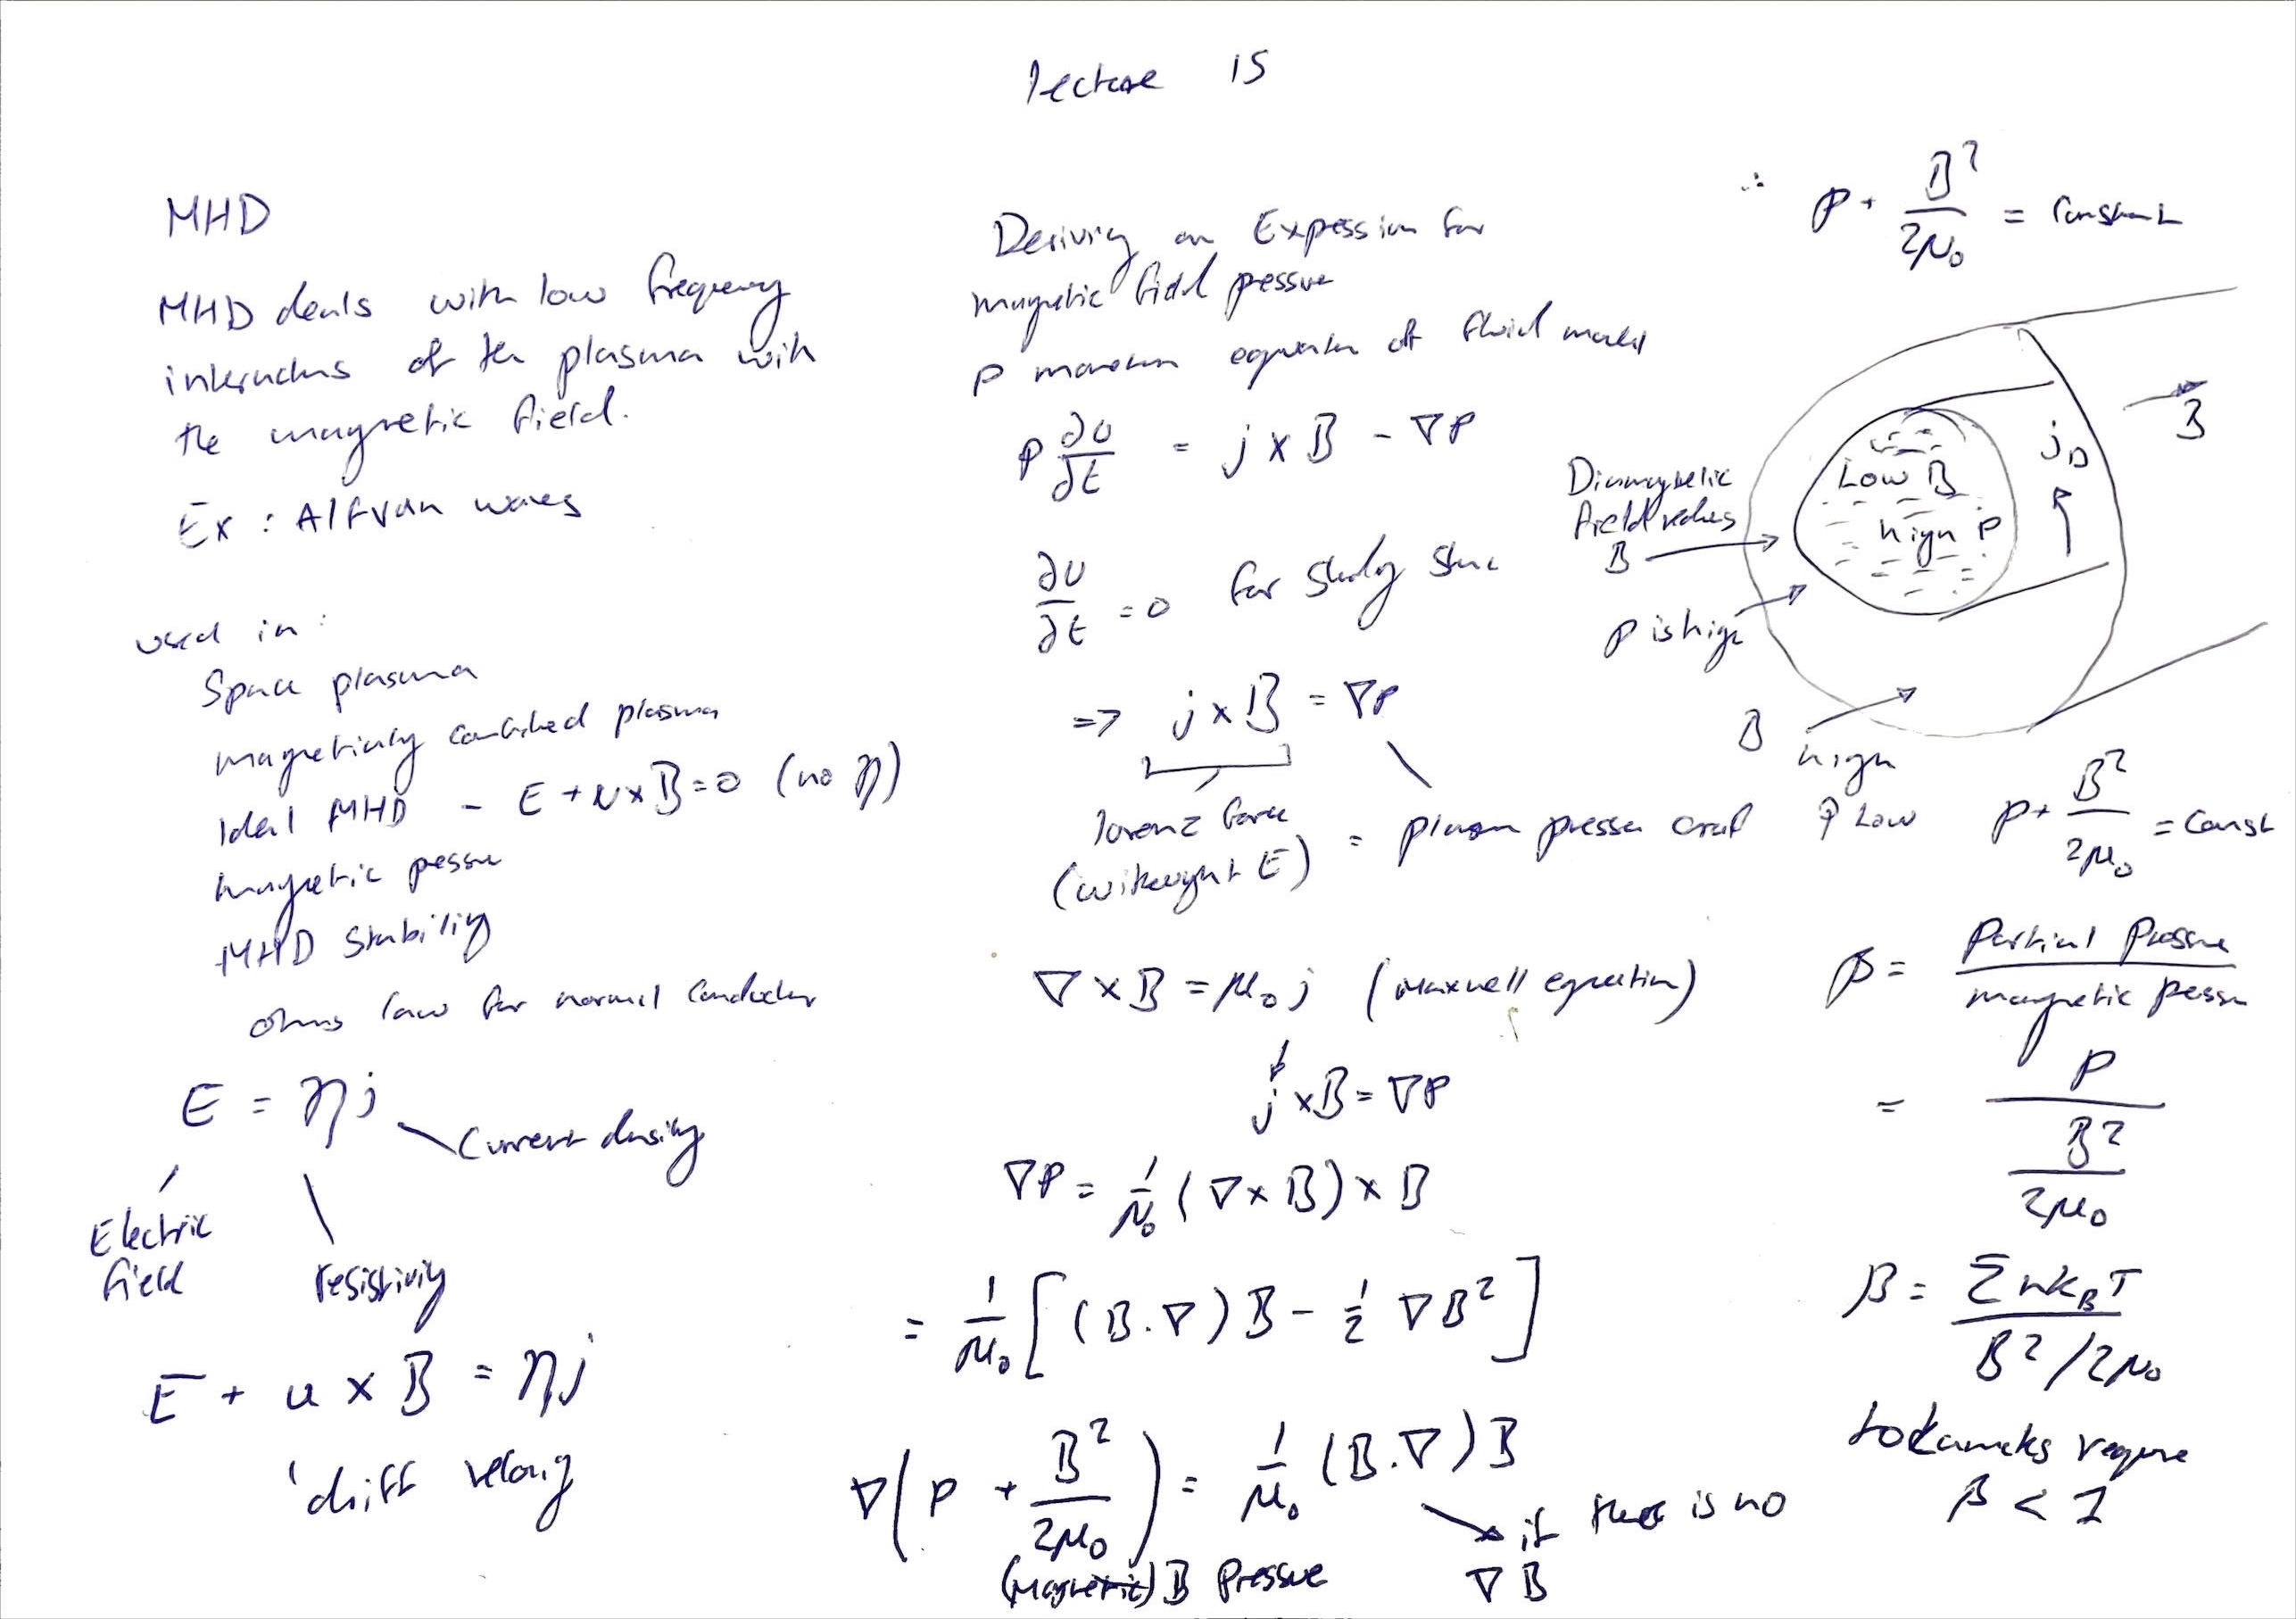 Lecture 15
MHD
MHD deals with low frequency
interactions of the plasma with
the magnetic field.
Ex : Alfvan waves
used in :
Space plasma
magnetically confined plasma
Ideal MHD - E + u x B = 0 (no η)
magnetic pressure
MHD Stability
ohms law for normal conductor
E = ηj
Current density
Electric
field
resistivity
E + u x B = ηj
drift velocity
Deriving an Expession for
magnetic field pressure
ρ momentum equation of fluid model
ρ ∂u/∂t = j x B - ∇P
∂u/∂t = 0 for Steady State
=> j x B = ∇P
lorenz force
(without E) = plasma pressure
∇ x B = μ₀ j (Maxwell equation)
j x B = ∇P
∇P = 1/μ₀ (∇ x B) x B
= 1/μ₀ [ (B.∇) B - 1/2 ∇B² ]
∇( P + B²/2μ₀ ) = 1/μ₀ (B.∇) B
if there is no
∇B
(Magnetic) B Pressure
∴ P + B²/2μ₀ = Constant
B
Diamagnetic
field reduces
B
Low B
high P
j_D
P is high
B high
P Low
P + B²/2μ₀ = Const
β = Partial Pressure / magnetic pressure
= P / (B²/2μ₀)
β = Σ nk_BT / (B²/2μ₀)
tokamaks require
β < 1